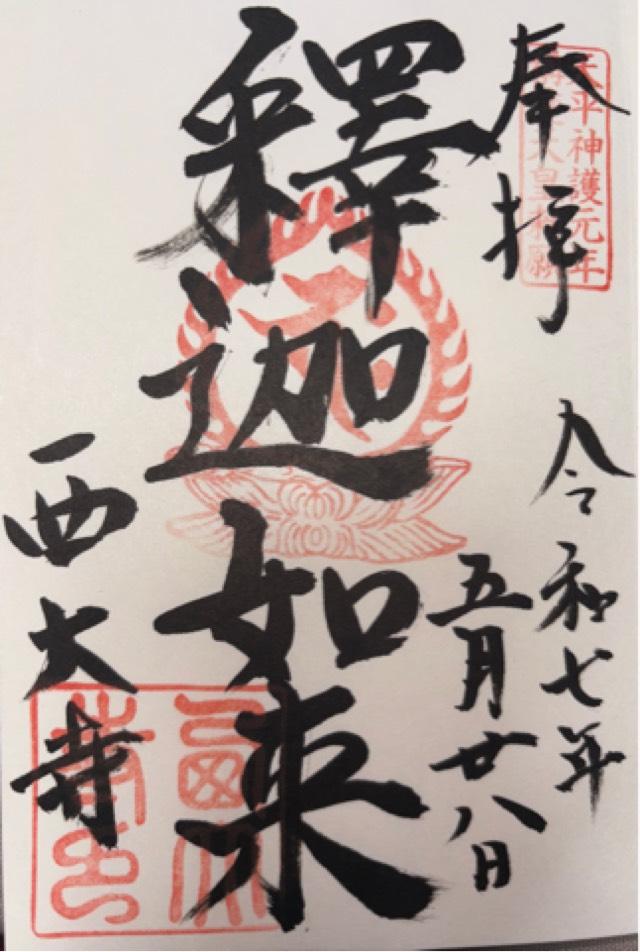 天平神護元年
天皇 願
奉拝
令和七年
五月廿八日
釋迦如来
西大寺
西大
寺印